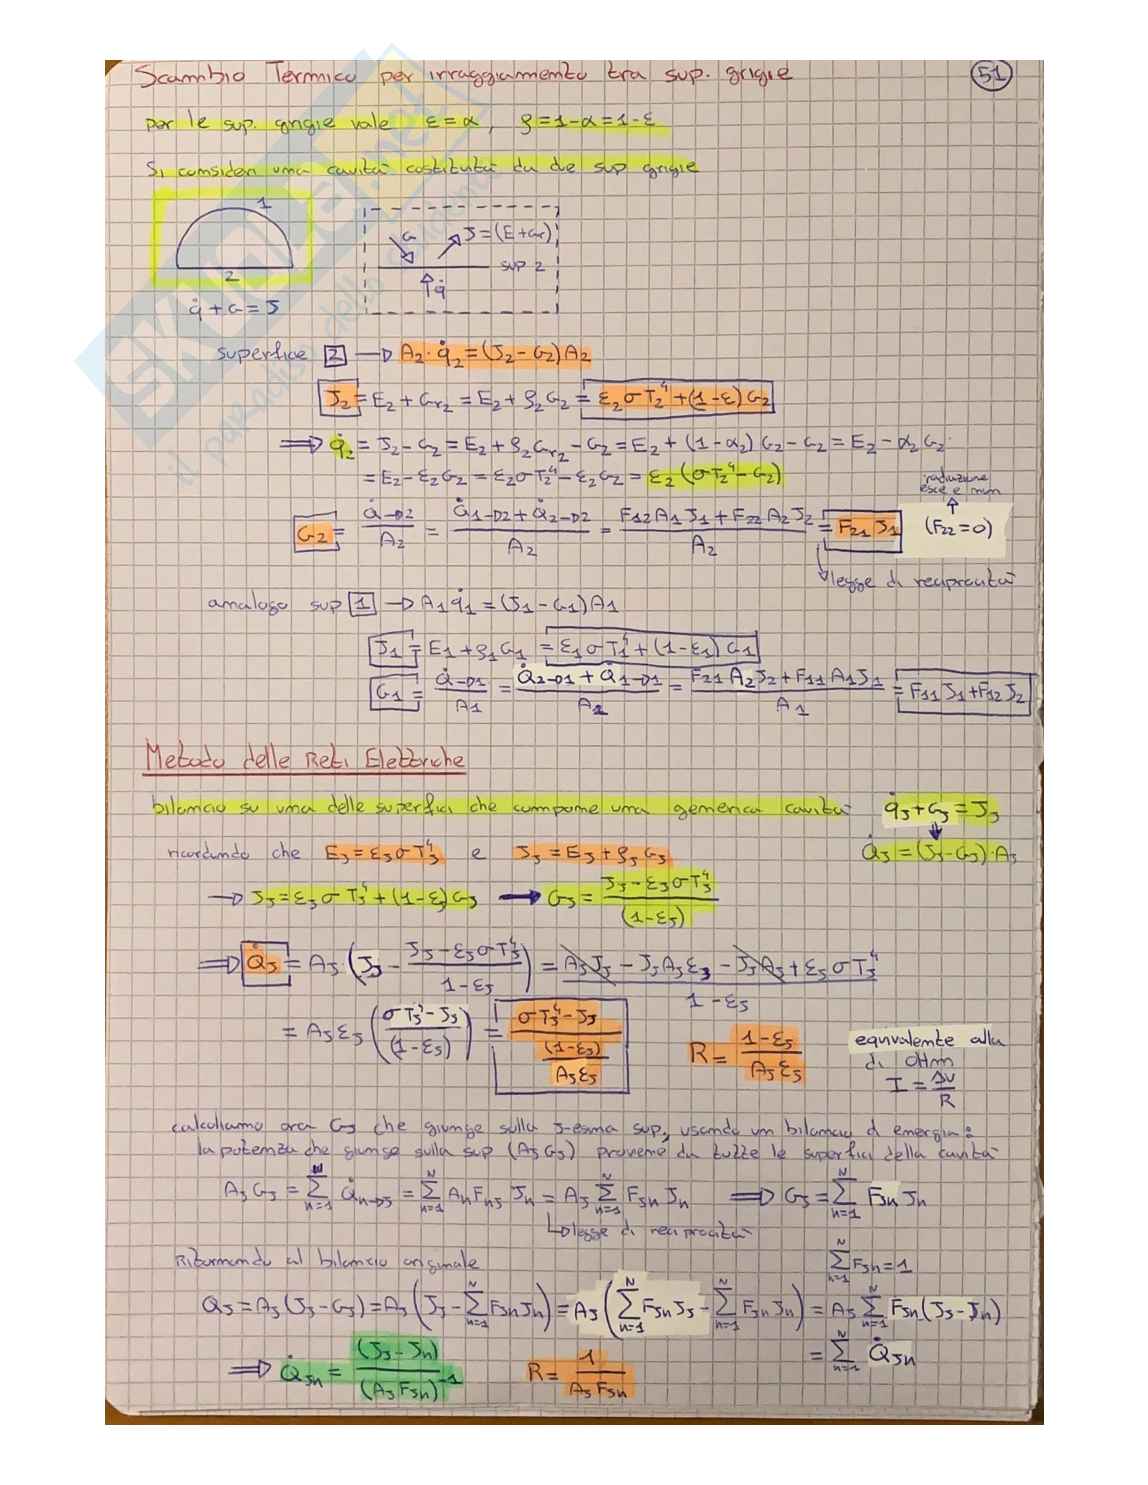 Scambio Termico per irraggiamento tra sup. grigie
51
per le sup. grigie vale ε=α, ρ=1-α=1-ε
Si consideri una cavità costituita da due sup grigie
1
2
G J=(E+Gr)
sup 2
q̇
q̇+G=J
superficie 2 → A₂·q̇₂=(J₂-G₂)A₂
J₂=E₂+Gr₂=E₂+ρ₂G₂=ε₂σT₂⁴+(1-ε)G₂
⇒ q̇₂=J₂-G₂=E₂+ρ₂Gr₂-G₂=E₂+(1-α₂)G₂-G₂=E₂-α₂G₂
=E₂-ε₂G₂=ε₂σT₂⁴-ε₂G₂=ε₂(σT₂⁴-G₂)
radiazione
esce e non
G₂ = Q̇→2/A₂ = (Q̇1→2+Q̇2→2)/A₂ = (F₁₂A₁J₁+F₂₂A₂J₂)/A₂ = F₂₁J₁ (F₂₂=0)
legge di reciprocità
analogo sup 1 → A₁q̇₁=(J₁-G₁)A₁
J₁=E₁+ρ₁G₁=ε₁σT₁⁴+(1-ε₁)G₁
G₁ = Q̇→1/A₁ = (Q̇2→1+Q̇1→1)/A₁ = (F₂₁A₂J₂+F₁₁A₁J₁)/A₁ = F₁₁J₁+F₁₂J₂
Metodo delle Reti Elettriche
bilancio su una delle superfici che compone una generica cavità q̇ⱼ+Gⱼ=Jⱼ
ricordando che Eⱼ=εⱼσTⱼ⁴ e Jⱼ=Eⱼ+ρⱼGⱼ Q̇ⱼ=(Jⱼ-Gⱼ)·Aⱼ
→ Jⱼ=εⱼσTⱼ⁴+(1-εⱼ)Gⱼ → Gⱼ=(Jⱼ-εⱼσTⱼ⁴)/(1-εⱼ)
⇒ Q̇ⱼ=Aⱼ(Jⱼ-(Jⱼ-εⱼσTⱼ⁴)/(1-εⱼ))=(AⱼJⱼ-JⱼAⱼεⱼ-JⱼAⱼ+εⱼσTⱼ⁴)/(1-εⱼ)
=Aⱼεⱼ((σTⱼ⁴-Jⱼ)/(1-εⱼ))=(σTⱼ⁴-Jⱼ)/((1-εⱼ)/(Aⱼεⱼ)) R=(1-εⱼ)/(Aⱼεⱼ) equivalente alla
di OHm
I=ΔV/R
calcoliamo ora Gⱼ che giunge sulla J-esma sup, usando un bilancio di energia:
la potenza che giunge sulla sup (AⱼGⱼ) proviene da tutte le superfici della cavità
AⱼGⱼ=∑ₙ₌₁ᴺ Q̇n→j=∑ₙ₌₁ᴺ AₙFₙⱼJₙ=Aⱼ∑ₙ₌₁ᴺ FⱼₙJₙ ⇒ Gⱼ=∑ₙ₌₁ᴺ FⱼₙJₙ
legge di reciprocità
Ritornando al bilancio originale ∑ₙ₌₁ᴺ Fⱼₙ=1
Qⱼ=Aⱼ(Jⱼ-Gⱼ)=Aⱼ(Jⱼ-∑ₙ₌₁ᴺ FⱼₙJₙ)=Aⱼ(∑ₙ₌₁ᴺ FⱼₙJⱼ-∑ₙ₌₁ᴺ FⱼₙJₙ)=Aⱼ∑ₙ₌₁ᴺ Fⱼₙ(Jⱼ-Jₙ)
=∑ₙ₌₁ᴺ Q̇ⱼₙ
⇒ Q̇ⱼₙ=(Jⱼ-Jₙ)/(AⱼFⱼₙ)⁻¹ R=1/(AⱼFⱼₙ)
SKUOLA.net
il paradiso dello studente